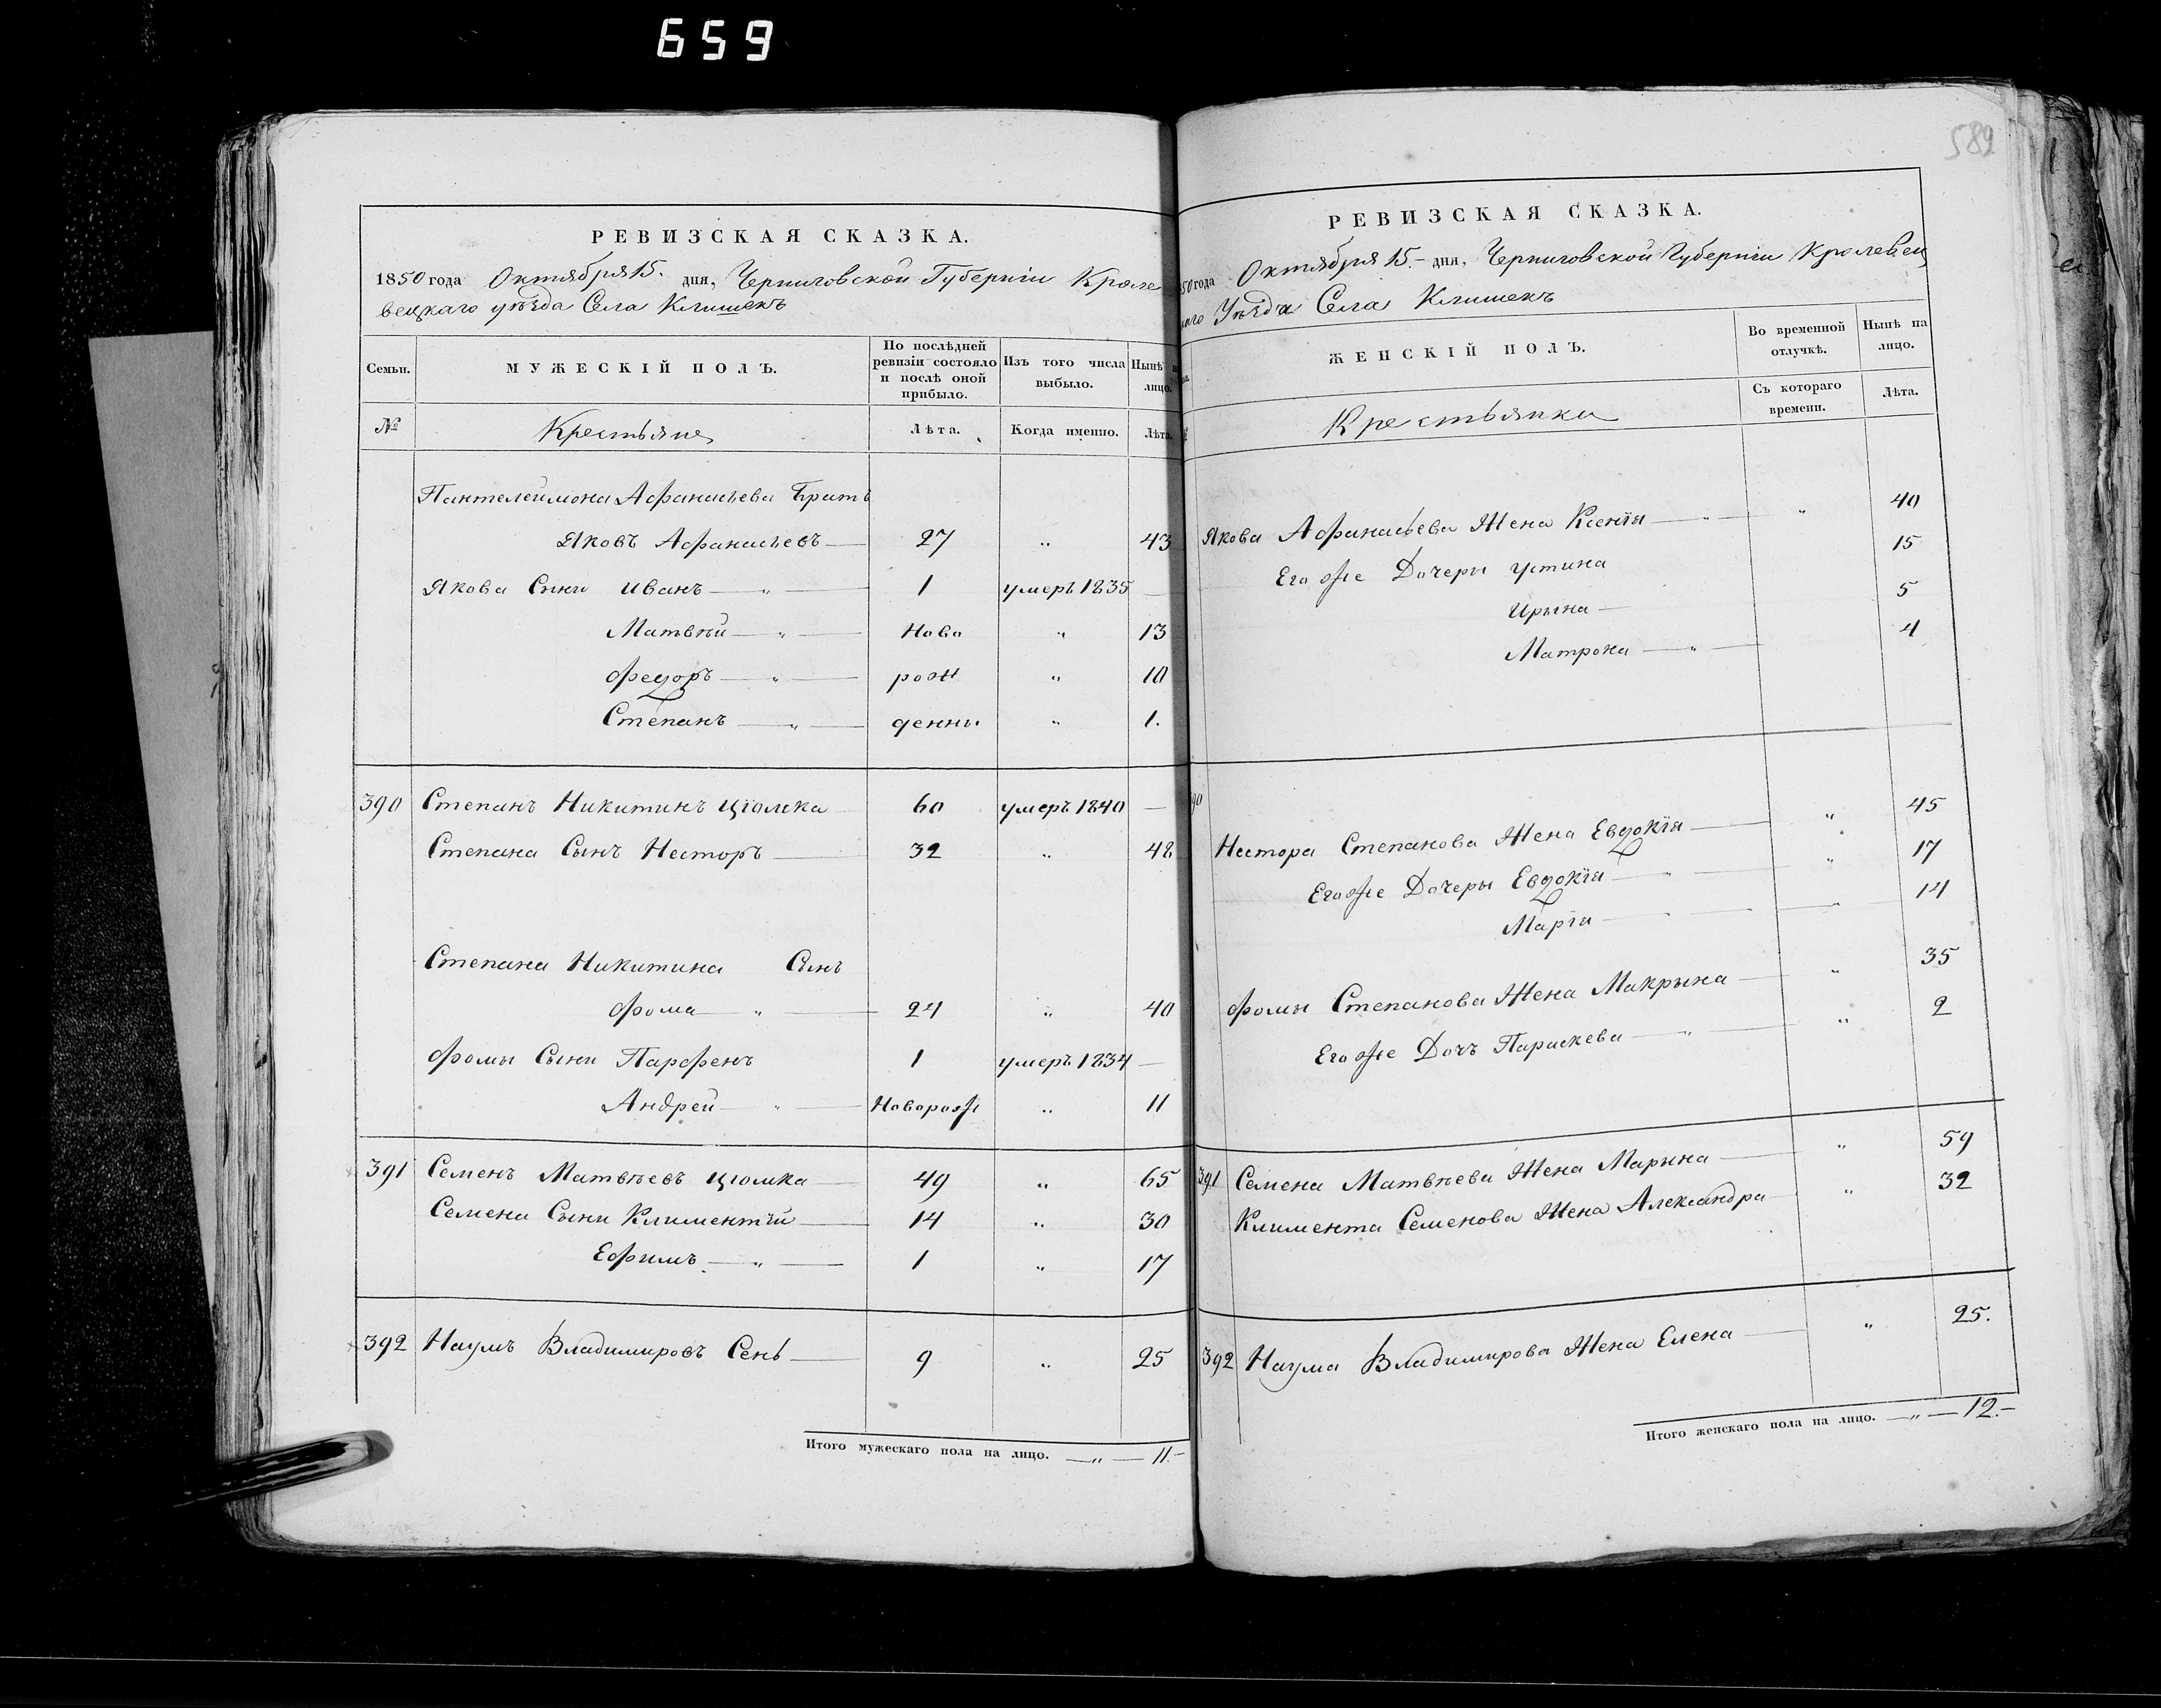 659
РЕВИЗСКАЯ СКАЗКА.
1850 года Октября 15. дня, Черниговской Губерніи Кроле
вецкаго уѣзда Села Клишекъ
Семьи.
МУЖЕСКІЙ ПОЛЪ.
По послѣдней ревизіи состояло и послѣ оной прибыло.
Изъ того числа выбыло.
Нынѣ
лицо.
№ Крестьяне Лѣта. Когда именно. Лѣта
Пантелеймона Афанасьева Братъ
Яковъ Афанасьевъ 27 " 43
Якова Сыни Иванъ " 1 умеръ 1835 —
Матвѣй " Ново " 13
Федоръ " рож " 10
Степанъ " денны " 1.
390 Степанъ Никитинъ Цюмка 60 умеръ 1840 —
Степана Сынъ Несторъ 32 " 48
Степана Никитина Сынъ
Фома " 24 " 40
Фомы Сыни Парфенъ 1 умеръ 1834 —
Андрей " Соворож " 11
391 Семенъ Матвѣевъ Цюмка 49 " 65
Семена Сыни Климентій 14 " 30
Ефимъ " 1 " 17
392 Наумъ Владимировъ Сень 9 " 25
Итого мужескаго пола на лицо. — " — 11 —
589
РЕВИЗСКАЯ СКАЗКА.
50 года Октября 15. дня, Черниговской Губерніи Кролевец
каго Уѣзда Села Клишекъ
ЖЕНСКІЙ ПОЛЪ.
Во временной отлучкѣ.
Нынѣ на лицо.
Съ котораго времени.
Лѣта.
Крестьянки
Якова Афанасьева Жена Ксенія " " 40
Его же Дочери Устина 15
Ирына 5
Матрона " 4
90
Нестора Степанова Жена Евдокія " 45
Его же Дочеры Евдокія " " 17
Марія " " 14
Фомы Степанова Жена Макрына " 35
Его же Дочъ Параскева " " 2
391 Семена Матвѣева Жена Марына " 59
Климента Семенова Жена Александра " 32
392 Наума Владимирова Жена Елена " 25.
Итого женскаго пола на лицо. — " — 12. —